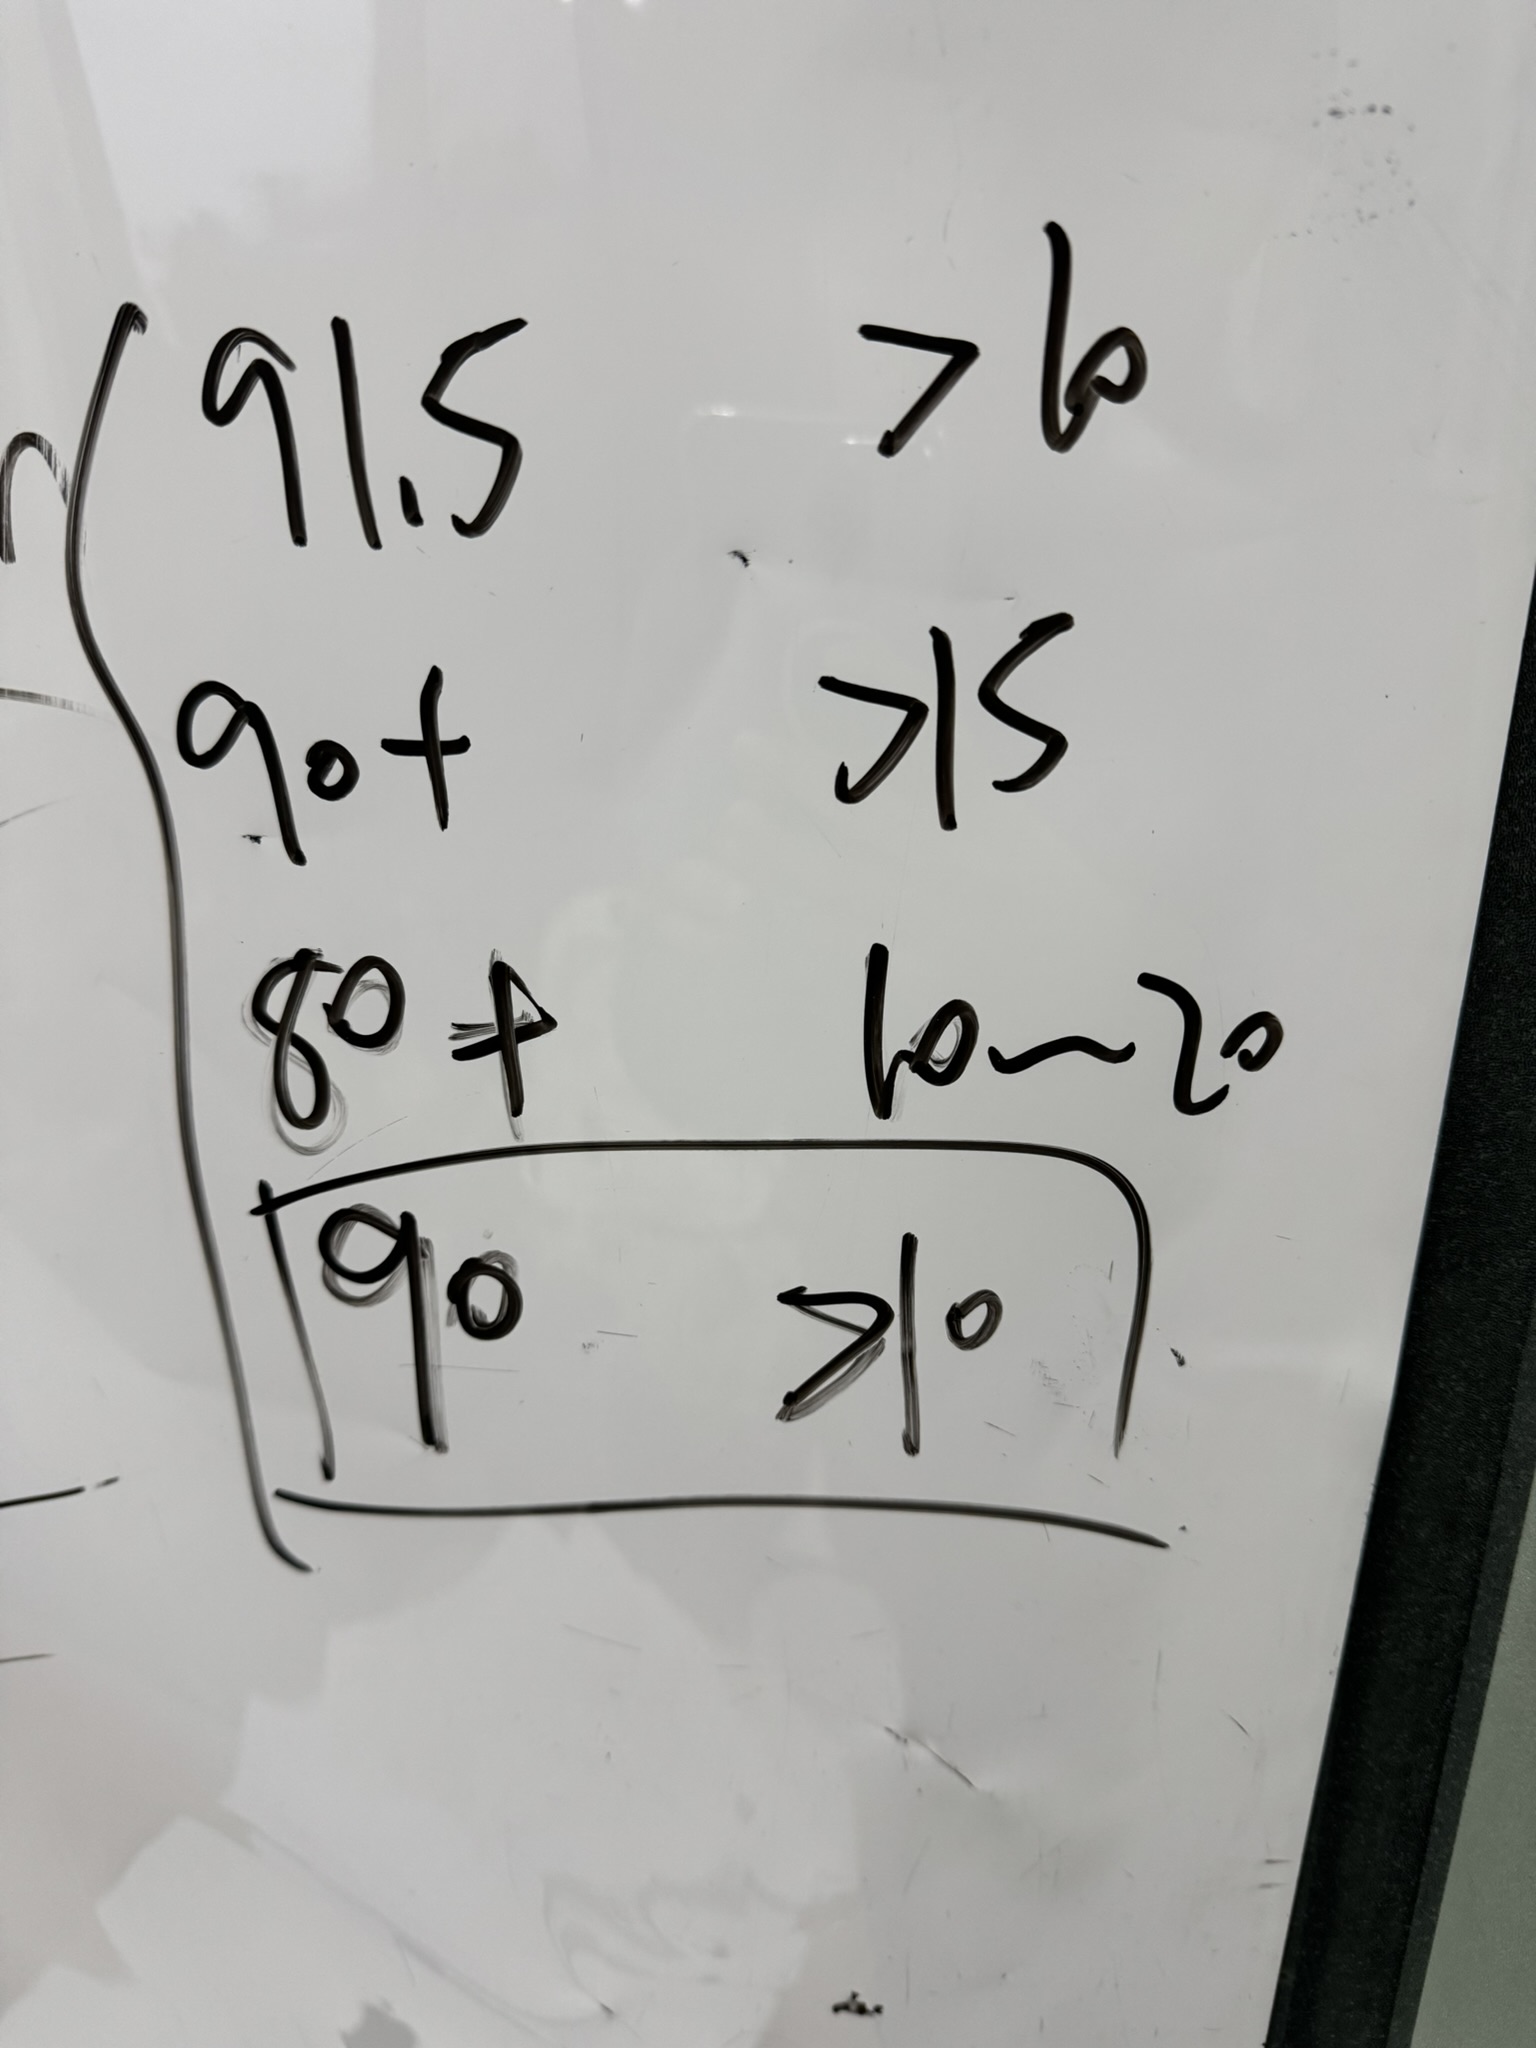 91.5 >10
90+ >15
80+ 10~20
90 >10